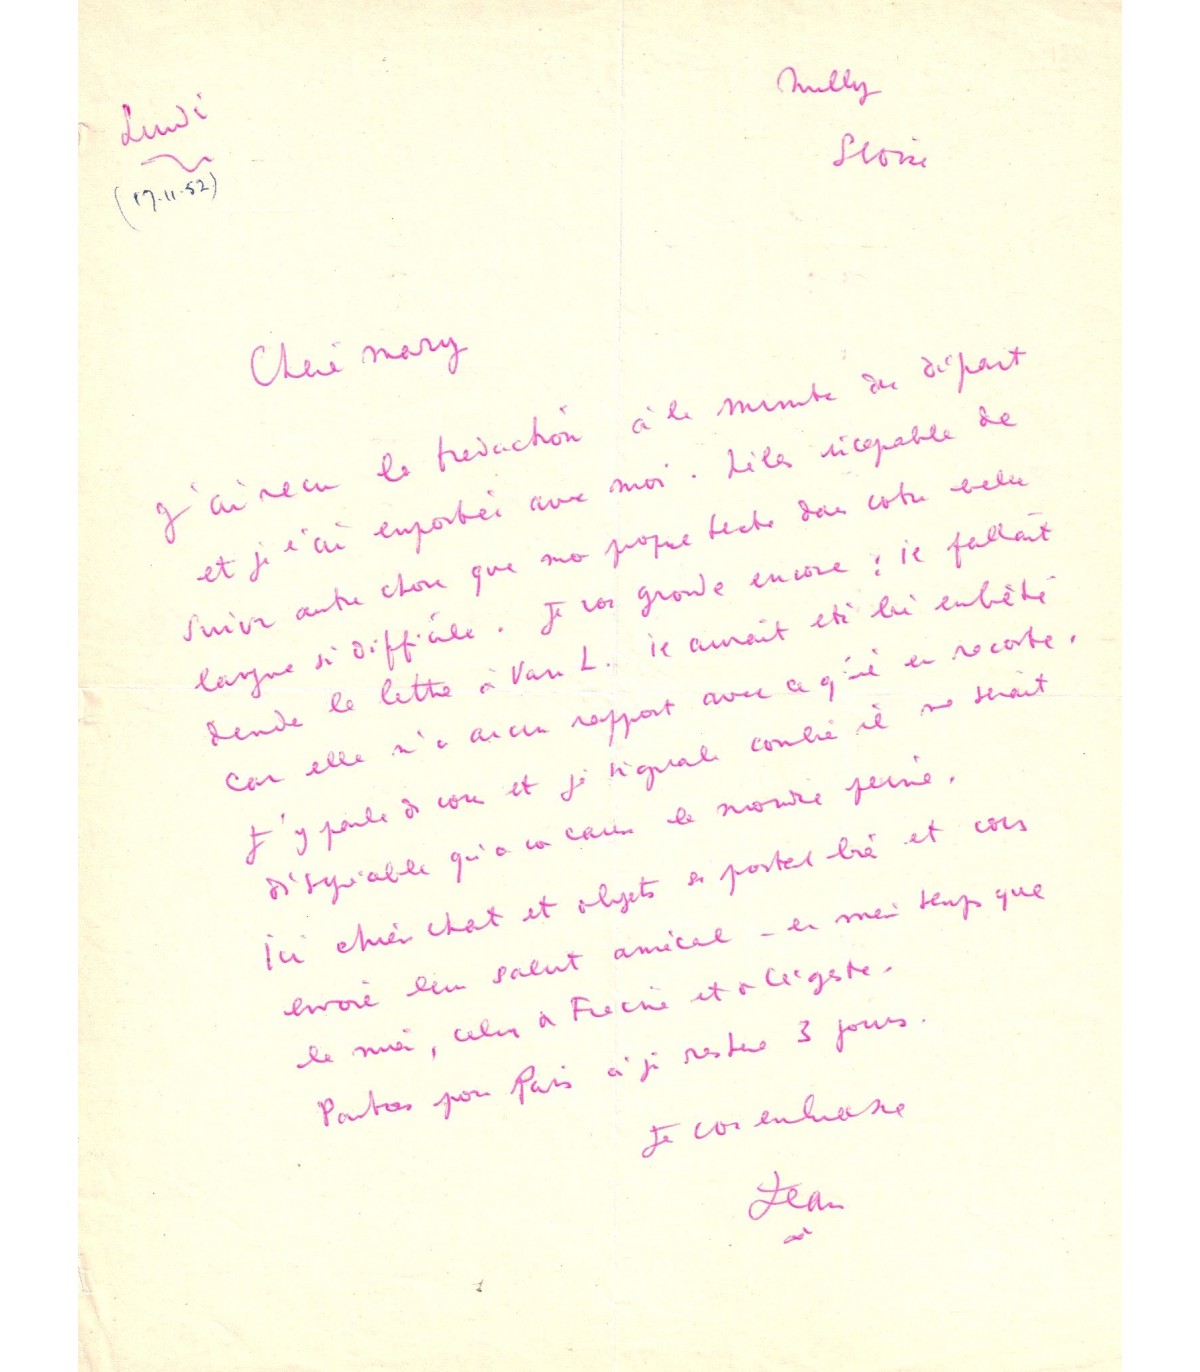 Milly
S et Oise
Lundi
(17-11-52)
Chère Mary
J'ai reçu la traduction à la minute du départ
et je l'ai emportée avec moi. Hélas incapable de
suivre autre chose que mon propre texte dans votre belle
langue si difficile. Je vous gronde encore : il fallait
la lettre à Van L. il aurait été bien embêté
car elle n'a aucun rapport avec ce qu'il en raconte.
J'y parle de vous et je signale combien il me serait
désagréable qu'on vous causa la moindre peine.
Ici chien chat et objets se portent bien et vous
envoient leur salut amical – en même temps que
le mien, celui de Francine et de Cégeste.
pour Paris où je resterai 3 jours.
Je vous embrasse
Jean